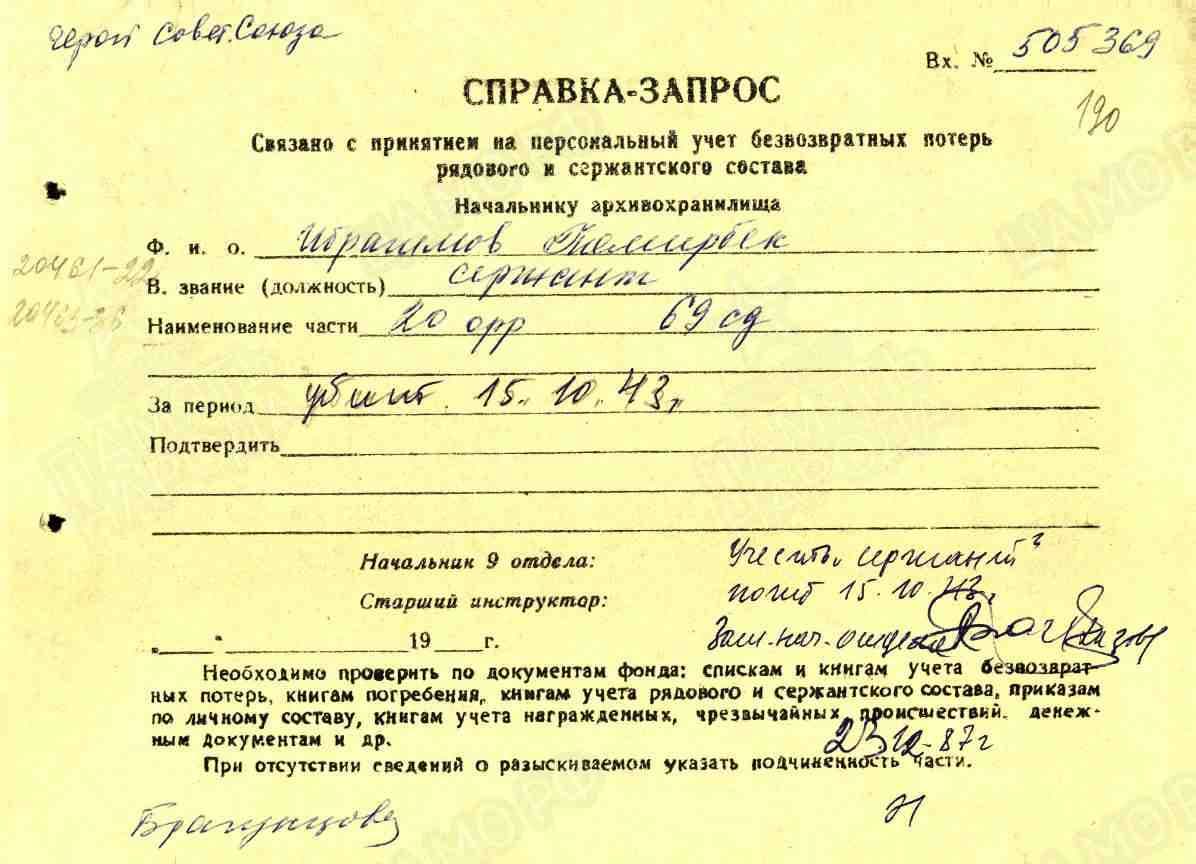 Герой Совет. Союза
Вх. № 505369
190
СПРАВКА-ЗАПРОС
Связано с принятием на персональный учет безвозвратных потерь
рядового и сержантского состава
Начальнику архивохранилища
Ф. и. о. Ибрагимов
20461-22
В. звание (должность) сержант
Наименование части 20 орр 69 сд
За период убит 15.10.43г
Подтвердить
Начальник 9 отдела: Учесть „сержант"
Старший инструктор: погиб 15.10.43г
„ " 19 г. Зам. нач. отдела
Необходимо проверить по документам фонда: спискам и книгам учета безвозврат-
ных потерь, книгам погребения, книгам учета рядового и сержантского состава, приказам
по личному составу, книгам учета награжденных, чрезвычайных происшествий, денеж-
ным документам и др.
23 12.87г
При отсутствии сведений о разыскиваемом указать подчиненность части.